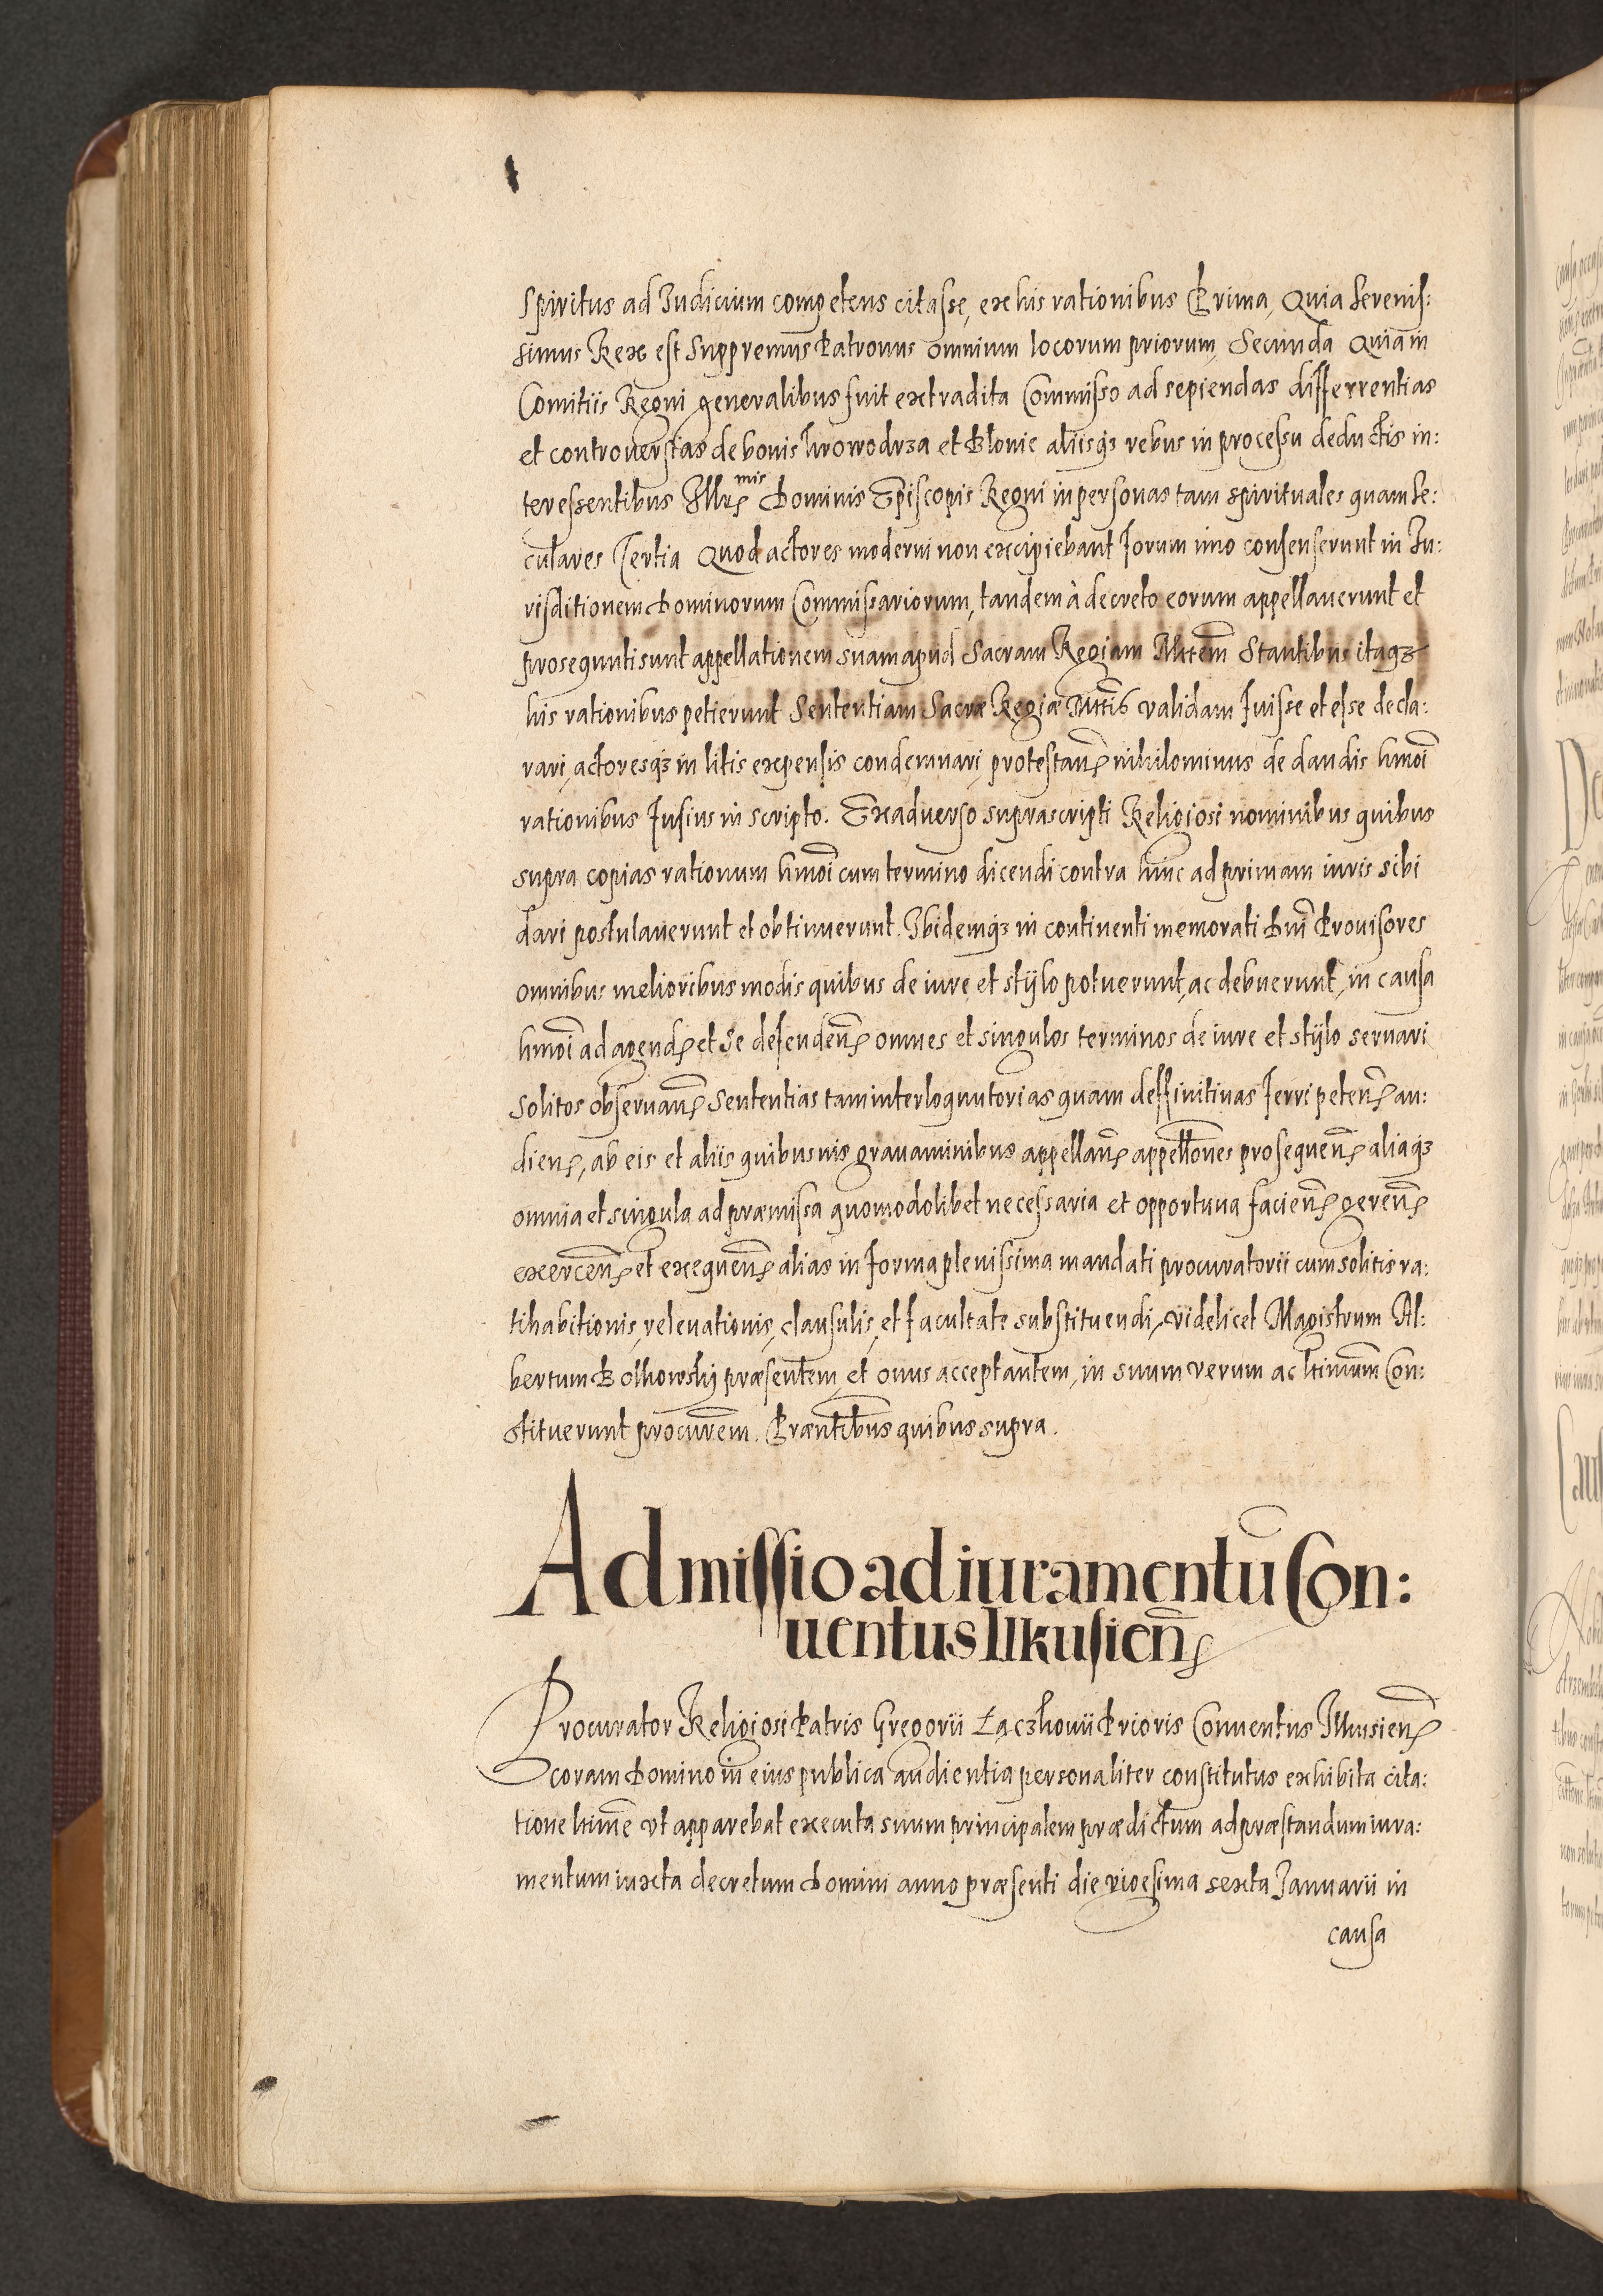 Spiritus ad Iudicium competens citasse, ex his rationibus Prima, Quia Serenis:
simus Rex est Suppremus Patronus omnium locorum priorum, Secunda Quia in
Comitiis Regni generalibus fuit extradita Commisso ad sepiendas differrentias
et controuersias de bonis Prowodrza et Blonie aliisq3 rebus in processu deductis in:
teressentibus Illr̃mis Dominis Episcopis Regni in personas tam spirituales quam se:
culares Tertia Quod actores moderni non excipiebant forum imo consenserunt in Iu:
risditionem Dominorum Commissariorum, tandem à decreto eorum appellauerunt et
prosequuti sunt appellationem suam apud Sacram Regiam Mttem̃ Stantibus itaq3
his rationibus petierunt Sententiam Sacræ Regiæ Mttis̃ validam fuisse et esse decla:
rari, actoresq3 in litis expensis condemnari, protestañ nihilominus de dandis hmoi̇̃
rationibus fusius in scripto. Ex aduerso suprascripti Religiosi nominibus quibus
supra copias rationum hmoĩ cum termino dicendi contra hinc ad primam iuris sibi
dari postulauerunt et obtinuerunt. Ibidemq3 in continenti memorati Dnĩ Prouisores
omnibus melioribus modis quibus de iure et stylo potuerunt, ac debuerunt, in causa
hmoĩ ad agend et se defendeñ omnes et singulos terminos de iure et stylo seruari
solitos obseruañ Sententias tam interloqnutorias quam deffinitiuas ferri peteñ au:
dieñ, ab eis et aliis quibusuis grauaminibus appellañ appellõnes prosequeñ aliaq3
omnia et singula ad præmissa quomodolibet necessaria et opportuna facieñ gereñ
exerceñ et exequeñ alias in forma plenissima mandati procuratorii cum solitis ra:
tihabitionis, releuationis, clausulis, et facultate substituendi, videlicet Magistrum Al:
bertum Bolkowskj præsentem, et onus acceptantem, in suum verum ac ltimum̃ Con:
stituerunt procurem̃. Præntibus̃ quibus supra.
Admissio ad iuramentũ Con:
uentus Ilkusieñ
Procurator Religiosi Patris Gregorii Łączkouii Prioris Conuentus Ilkusieñ
coram Domino in eius publica audientia personaliter constitutus exhibita cita:
tione ltimẽ vt apparebat executa suum principalem prædictum ad præstandum iura:
mentum iuxta decretum Domini anno præsenti die vigesima sexta Ianuarii in
causa